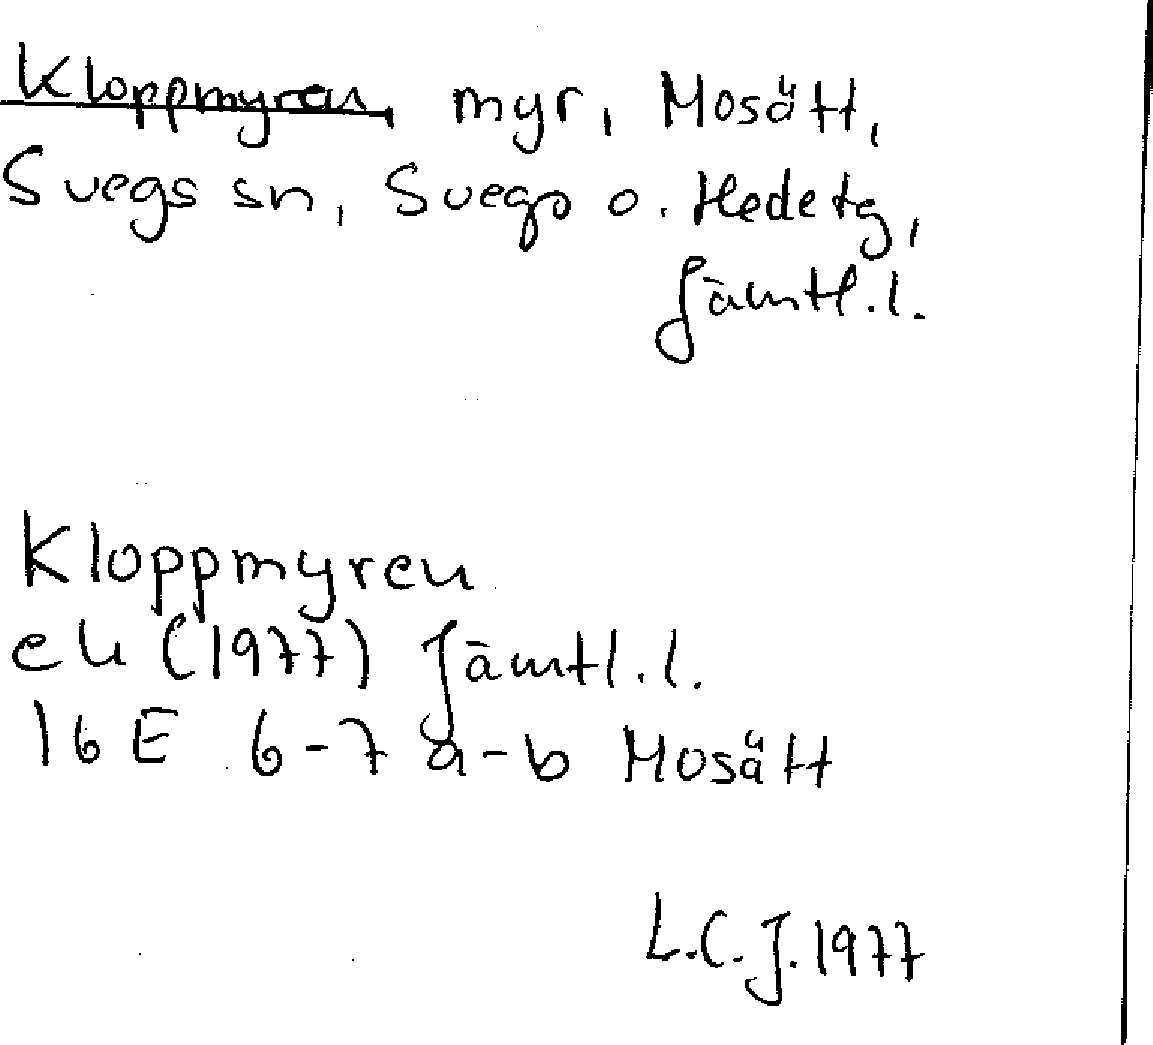 Kloppmyren, myr, Mosätt,
Svegs sn, Svegs o. Hede tg,
Jämtl.l.
Kloppmyren
ek (1977) Jämtl.l.
16E 6-7 a-b Mosätt
L.C.J. 1977